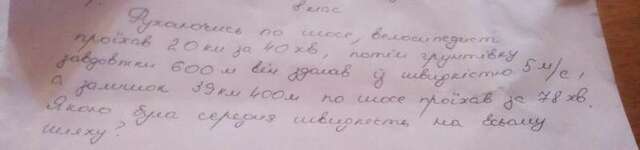 8 клас
Рухаючись по шосе, велосипедист
проїхав 20 км за 40 хв, потім грунтівку
завдовжки 600 м він здолав зі швидкістю 5 м/с,
а залишок 39 км 400 м по шосе проїхав за 78 хв.
Якою була середня швидкість на всьому
шляху?